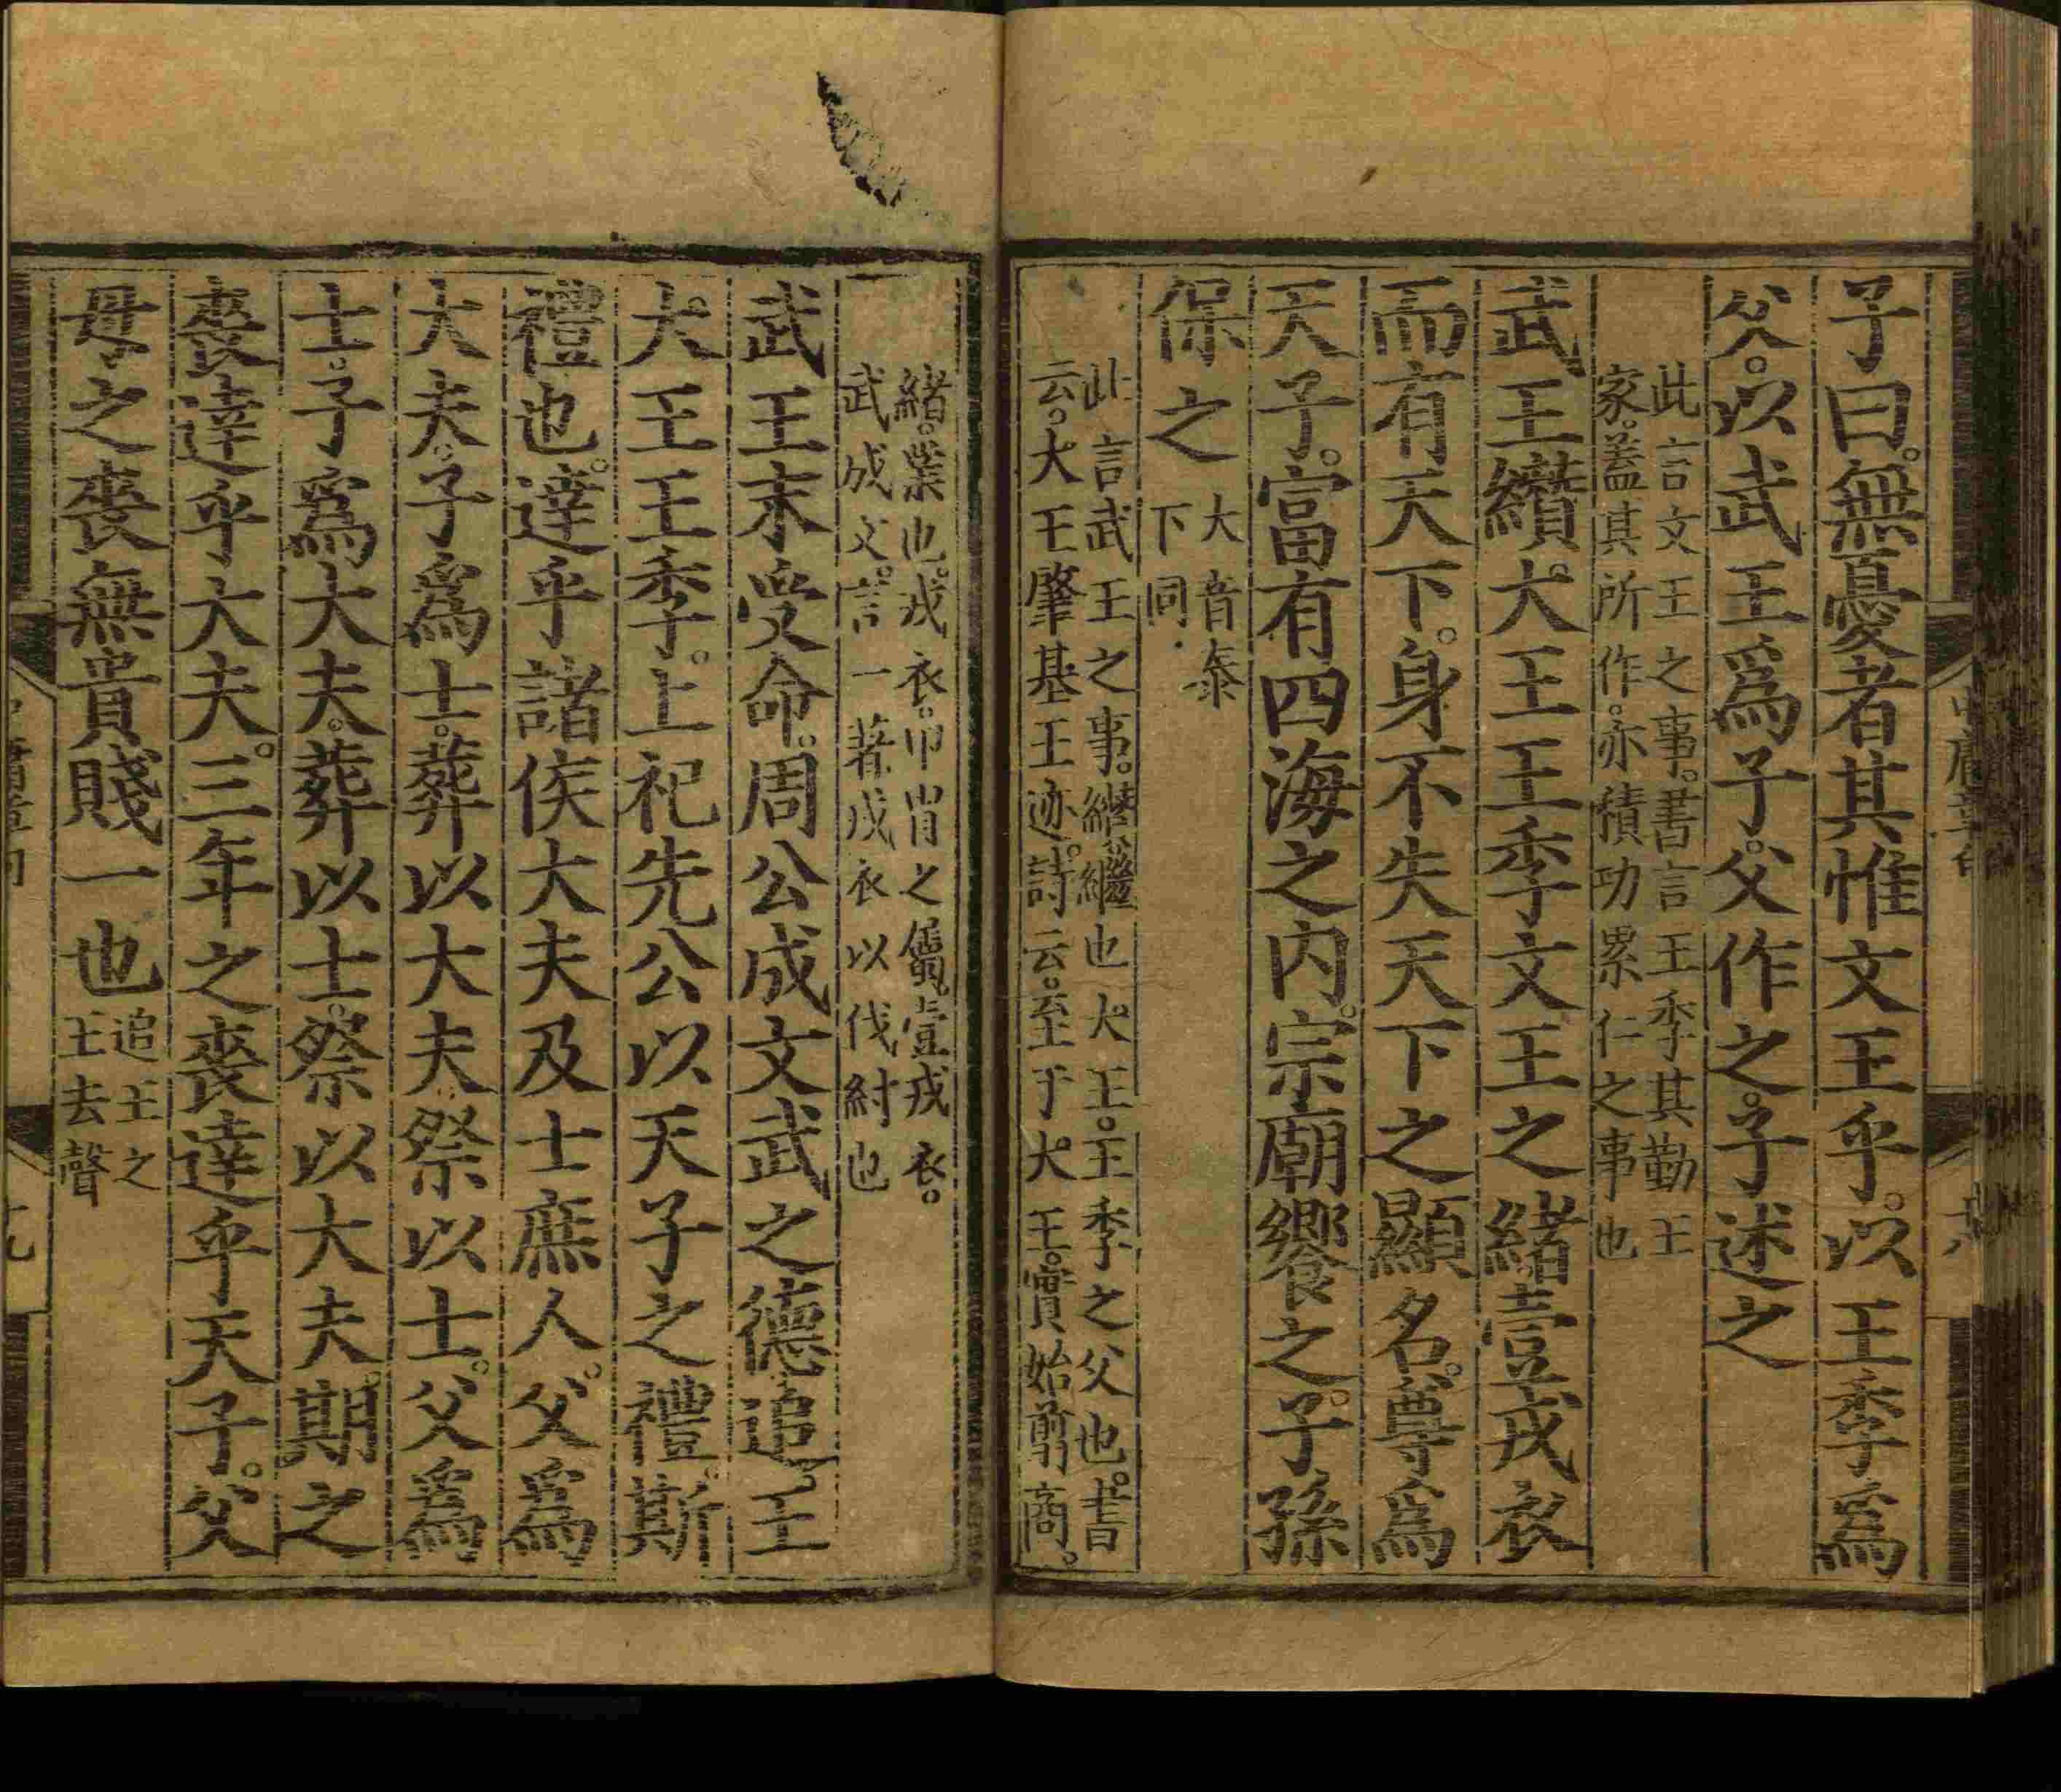 子曰。無憂者其惟文王乎。以王季爲
父。以武王爲子。父作之。子述之
此言文王之事。書言王季其勤王
家。蓋其所作。亦積功累仁之事也
武王纘大王王季文王之緒壹戎衣
而有天下。身不失天下之顯名。尊爲
天子。富有四海之内。宗廟饗之。子孫
保之
大音泰
下同
此言武王之事。纘。繼也大王。王季之父也。書
云。大王肇基王迹。詩云。至于大王。實始翦商。
緒。業也。戎衣。甲冑之屬。壹戎衣。
武成文。言一著戎衣以伐紂也
武王末受命。周公成文武之德。追王
大王王季。上祀先公以天子之禮。斯
禮也。達乎諸侯大夫及士庶人。父爲
大夫。子爲士。葬以大夫。祭以士。父爲
士。子爲大夫。葬以士。祭以大夫。期之
喪達乎大夫。三年之喪達乎天子。父
母之喪無貴賤一也
追王之
王去聲